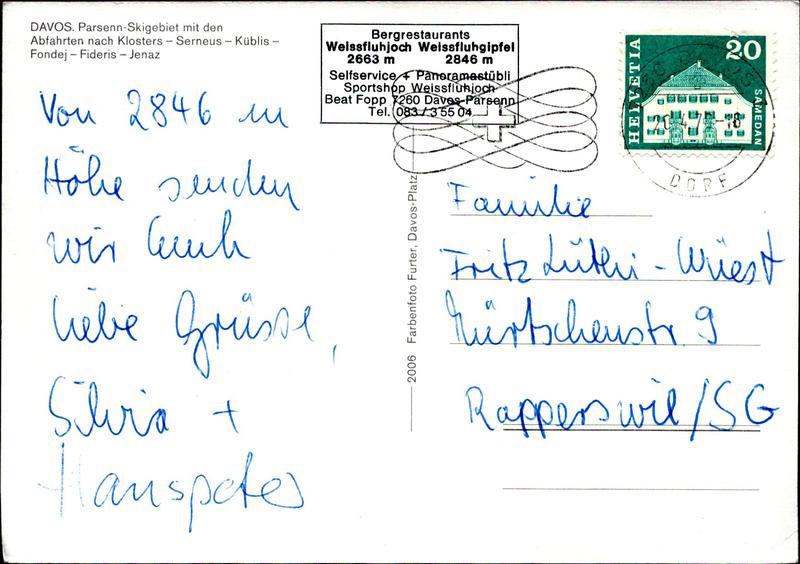 DAVOS. Parsenn-Skigebiet mit den
Abfahrten nach Klosters – Serneus – Küblis –
Fondej – Fideris – Jenaz
Bergrestaurants
Weissfluhjoch Weissfluhgipfel
2663 m 2846 m
Selfservice + Panoramastübli
Sportshop Weissfluhjoch
Beat Fopp 7260 Davos-Parsenn
Tel. 083 / 3 55 04
HELVETIA
20
SAMEDAN
DORF
Von 2846 m
Höhe senden
wir Euch
liebe Grüsse,
Silvia +
Hanspeter
2006 Farbenfoto Furter, Davos-Platz
Familie
Fritz Lüthi-Wüest
Zürtschenstr. 9
Rapperswil/SG